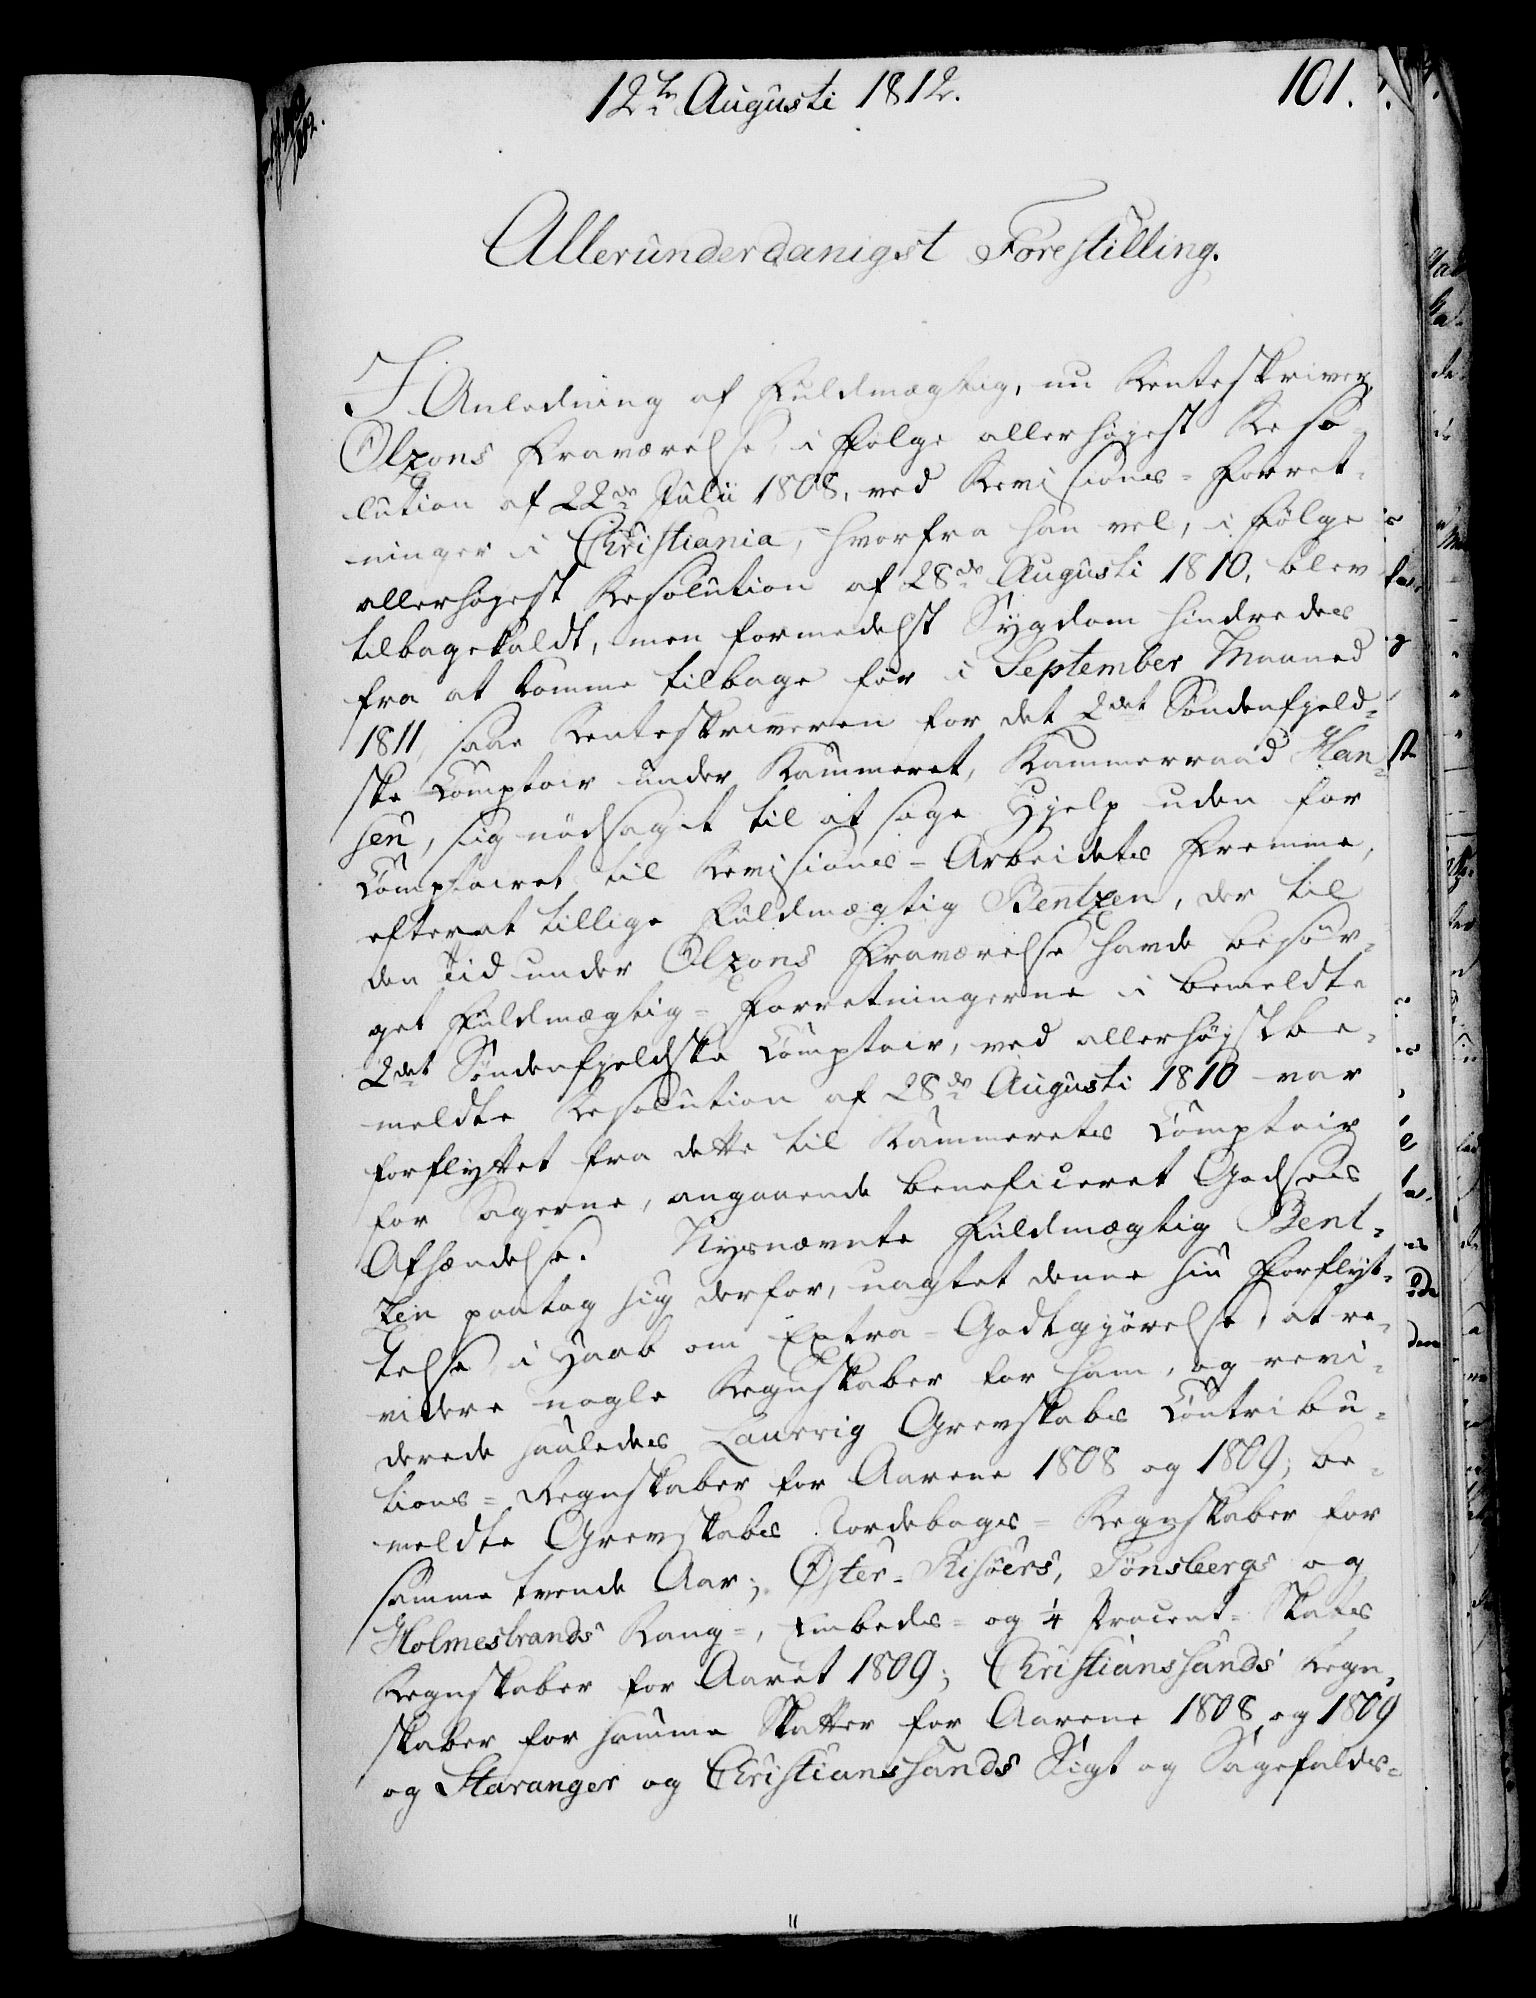 12te Augusti 1812.
101.
Allerunderdanigst Forestilling.
I Anledning af Fuldmægtig, nu Renteskriver
Olzons Fraværelse, i Følge allerhøyest Reso-
lution af 22de Julii 1808, ved Revisions-Forret-
ninger i Christiania, hvorfra han vel, i Følge
allerhøyest Resolution af 28de Augusti 1810, blev
tilbagekaldt, men formedelst Sygdom hindredes
fra at komme tilbage før i September Maaned
1811, saae Renteskriveren for det 2det Søndenfjeld-
ske Comptoir under Kammeret, Kammerraad Han-
sen, sig nødsaget til at søge Hjelp uden for
Comptoiret til Revisions-Arbeidets Fremme,
efterat tillige Fuldmægtig Bentzen, der til
den Tid under Olzons Fraværelse havde besør-
get Fuldmægtig-Forretningerne i bemeldte
2det Søndenfjeldske Comptoir, ved allerhøystbe-
meldte Resolution af 28de Augusti 1810 var
forflyttet fra dette til Kammerets Comptoir
for Sagerne, angaaende beneficeret Godses
Afhændelse. Nysnævnte Fuldmægtig Bent-
zen paatog sig derfor, uagtet denne sin Forflyt-
telse, i Haab om Extra-Godtgjørelse, at re-
videre nogle Regnskaber for ham, og revi-
derede saaledes Laurvig Grevskabs Contribu-
tions-Regnskaber for Aarene 1808 og 1809; be-
meldte Grevskabs Jordebogs-Regnskaber for
samme tvende Aar; Øster-Risøers, Tønsbergs og
Holmestrands Rang-, Embeds- og 1/4 Procent-Skats
Regnskaber for Aaret 1809; Christianssands Regn-
skaber for samme Skatter for Aarene 1808 og 1809
og Stavanger og Christianssands Sigt og Sagefalds-